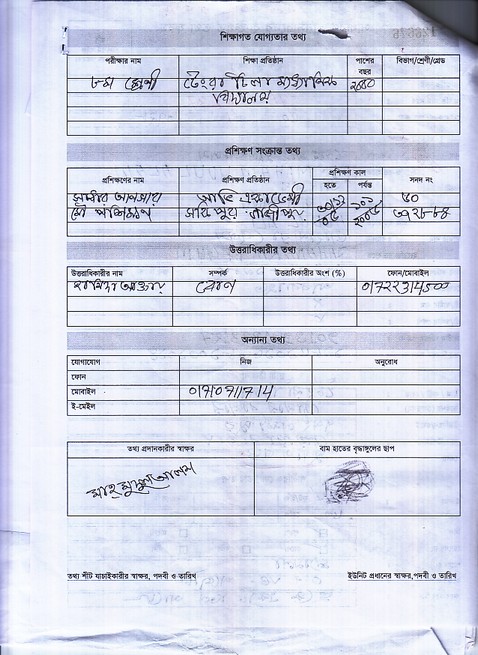 শিক্ষাগত যোগ্যতার তথ্য
পরীক্ষার নাম শিক্ষা প্রতিষ্ঠান পাশের বছর বিভাগ/শ্রেণী/গ্রেড
৮ম শ্রেণী টেংরা টিলা মাধ্যমিক
বিদ্যালয়
প্রশিক্ষণ সংক্রান্ত তথ্য
প্রশিক্ষণের নাম প্রশিক্ষণ প্রতিষ্ঠান প্রশিক্ষণ কাল সনদ নং
হতে পর্যন্ত
আনসার একাডেমী
সফিপুর গাজীপুর
উত্তরাধিকারীর তথ্য
উত্তরাধিকারীর নাম সম্পর্ক উত্তরাধিকারীর অংশ (%) ফোন/মোবাইল
আক্তার বোন 01722314500
অন্যান্য তথ্য
যোগাযোগ নিজ অনুরোধ
ফোন
মোবাইল 01710911714
ই-মেইল
তথ্য প্রদানকারীর স্বাক্ষর বাম হাতের বৃদ্ধাঙ্গুলের ছাপ
মাহমুদুল আলম
তথ্য শীট যাচাইকারীর স্বাক্ষর, পদবী ও তারিখ ইউনিট প্রধানের স্বাক্ষর,পদবী ও তারিখ